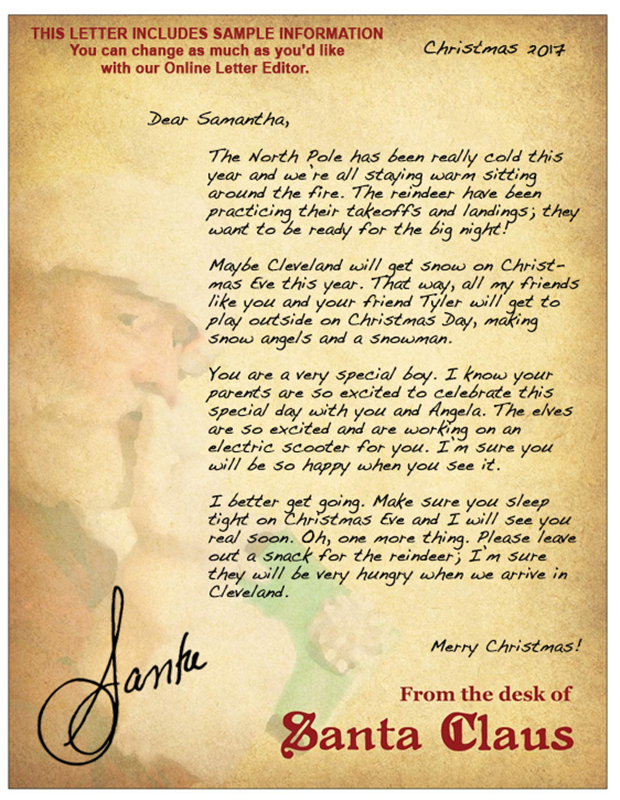 THIS LETTER INCLUDES SAMPLE INFORMATION
You can change as much as you'd like
with our Online Letter Editor.
Christmas 2017
Dear Samantha,
The North Pole has been really cold this
year and we're all staying warm sitting
around the fire. The reindeer have been
practicing their takeoffs and landings; they
want to be ready for the big night!
Maybe Cleveland will get snow on Christ-
mas Eve this year. That way, all my friends
like you and your friend Tyler will get to
play outside on Christmas Day, making
snow angels and a snowman.
You are a very special boy. I know your
parents are so excited to celebrate this
special day with you and Angela. The elves
are so excited and are working on an
electric scooter for you. I'm sure you
will be so happy when you see it.
I better get going. Make sure you sleep
tight on Christmas Eve and I will see you
real soon. Oh, one more thing. Please leave
out a snack for the reindeer; I'm sure
they will be very hungry when we arrive in
Cleveland.
Merry Christmas!
Santa
From the desk of
Santa Claus